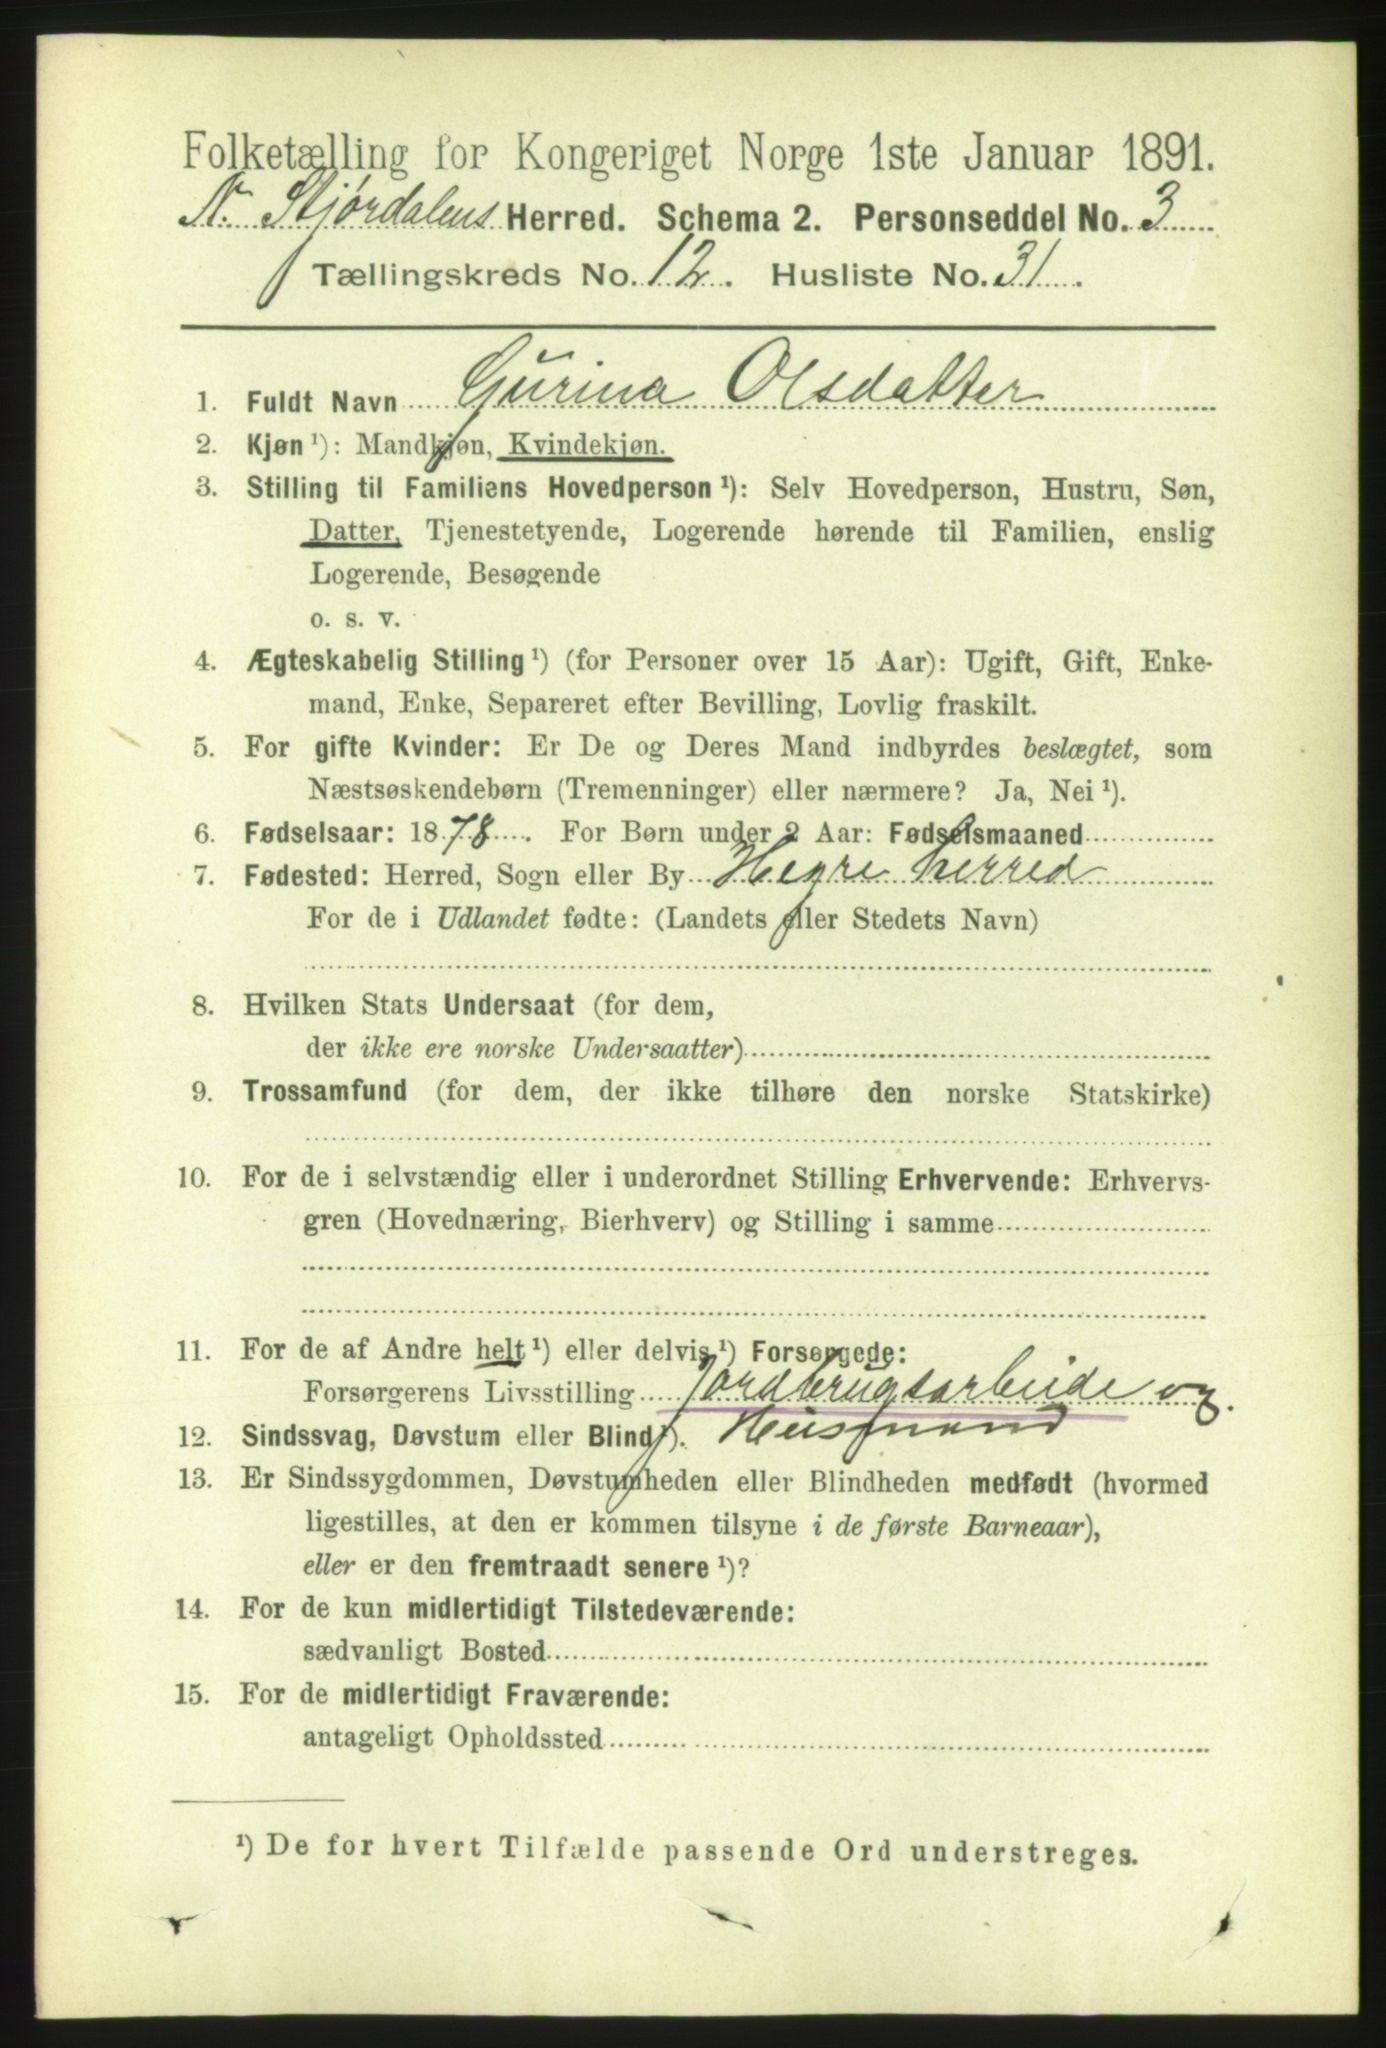 Folketælling for Kongeriget Norge 1ste Januar 1891.
N. Stjørdalens Herred. Schema 2. Personseddel No. 3
Tællingskreds No. 12. Husliste No. 31.
1. Fuldt Navn Gurina Olsdatter
2. Kjøn ¹): Mandkjøn, Kvindekjøn.
3. Stilling til Familiens Hovedperson ¹): Selv Hovedperson, Hustru, Søn,
Datter, Tjenestetyende, Logerende hørende til Familien, enslig
Logerende, Besøgende
o. s. v.
4. Ægteskabelig Stilling ¹) (for Personer over 15 Aar): Ugift, Gift, Enke-
mand, Enke, Separeret efter Bevilling, Lovlig fraskilt.
5. For gifte Kvinder: Er De og Deres Mand indbyrdes beslægtet, som
Næstsøskendebørn (Tremenninger) eller nærmere? Ja, Nei ¹).
6. Fødselsaar: 1878. For Børn under 2 Aar: Fødselsmaaned
7. Fødested: Herred, Sogn eller By Hegre herred
For de i Udlandet fødte: (Landets eller Stedets Navn)
8. Hvilken Stats Undersaat (for dem,
der ikke ere norske Undersaatter)
9. Trossamfund (for dem, der ikke tilhøre den norske Statskirke)
10. For de i selvstændig eller i underordnet Stilling Erhvervende: Erhvervs-
gren (Hovednæring, Bierhverv) og Stilling i samme
11. For de af Andre helt ¹) eller delvis ¹) Forsørgede:
Forsørgerens Livsstilling Jordbrugsarbeide og
12. Sindssvag, Døvstum eller Blind ¹). Husmand
13. Er Sindssygdommen, Døvstumheden eller Blindheden medfødt (hvormed
ligestilles, at den er kommen tilsyne i de første Barneaar),
eller er den fremtraadt senere ¹)?
14. For de kun midlertidigt Tilstedeværende:
sædvanligt Bosted
15. For de midlertidigt Fraværende:
antageligt Opholdssted
¹) De for hvert Tilfælde passende Ord understreges.